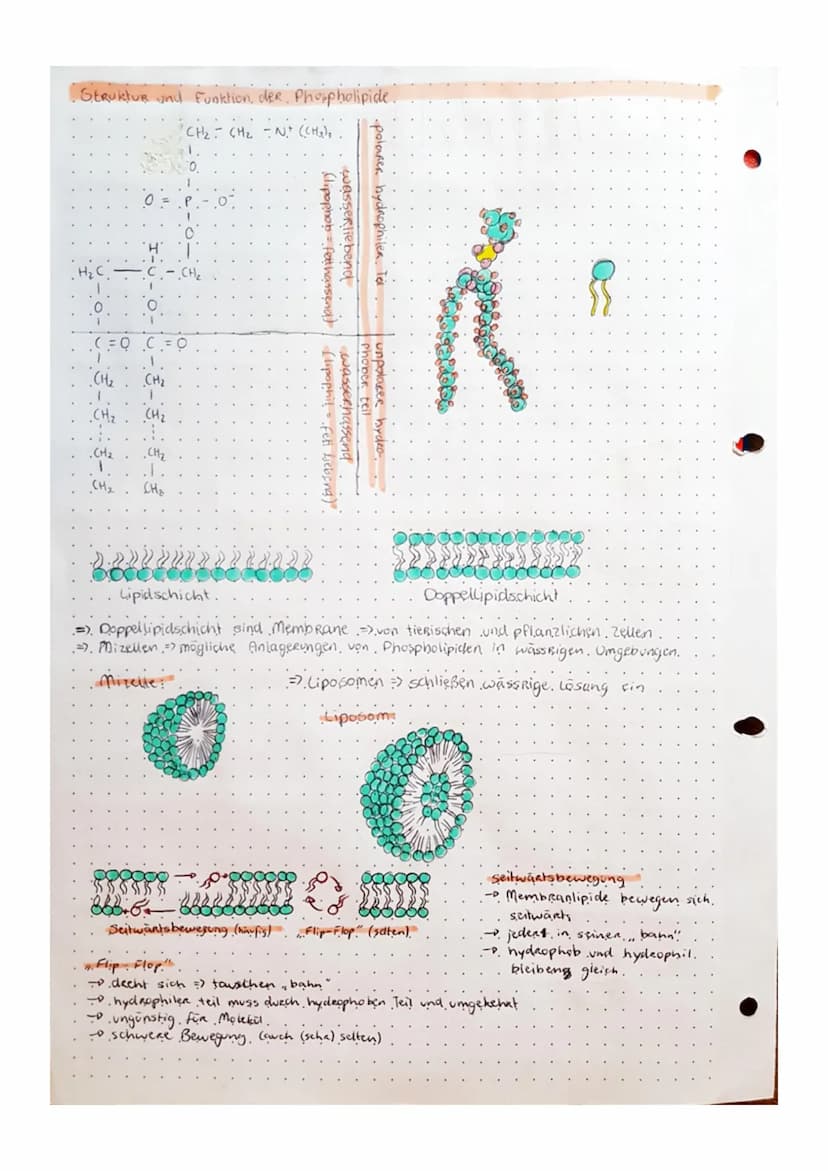 Struktur und Funktion der Phospholipide
CH₂ - CH₂ - N⁺ (CH₃)₃
O
O = P - O⁻
O
H
H₂C - C - CH₂
O O
C = O C = O
CH₂ CH₂
CH₂ CH₂
CH₂ CH₂
CH₂ CH₂
polarer hydrophiler Teil
wasserliebend
(lipophob = fetthassend)
unpolarer hydro-
phober teil
wasserhassend
(lipophil = fett liebend)
Lipidschicht
Doppellipidschicht
=> Doppellipidschicht sind Membrane => von tierischen und pflanzlichen Zellen
=> Mizellen => mögliche Anlagerungen von Phospholipiden in wässrigen Umgebungen.
Mizelle:
=> Liposomen => schließen wässrige Lösung ein
Liposom
Seitwärtsbewegung (häufig)
„Flip-Flop" (selten)
Seitwärtsbewegung
-> Membranlipide bewegen sich
seitwärts
-> jeder in seiner „bahn"
-> hydrophob und hydrophil
bleiben gleich
„Flip-Flop"
-> dreht sich => tauschen „bahn"
-> hydrophiler teil muss durch hydrophoben Teil und umgekehrt
-> ungünstig für Molekül
-> schwere Bewegung (auch (sehr) selten)